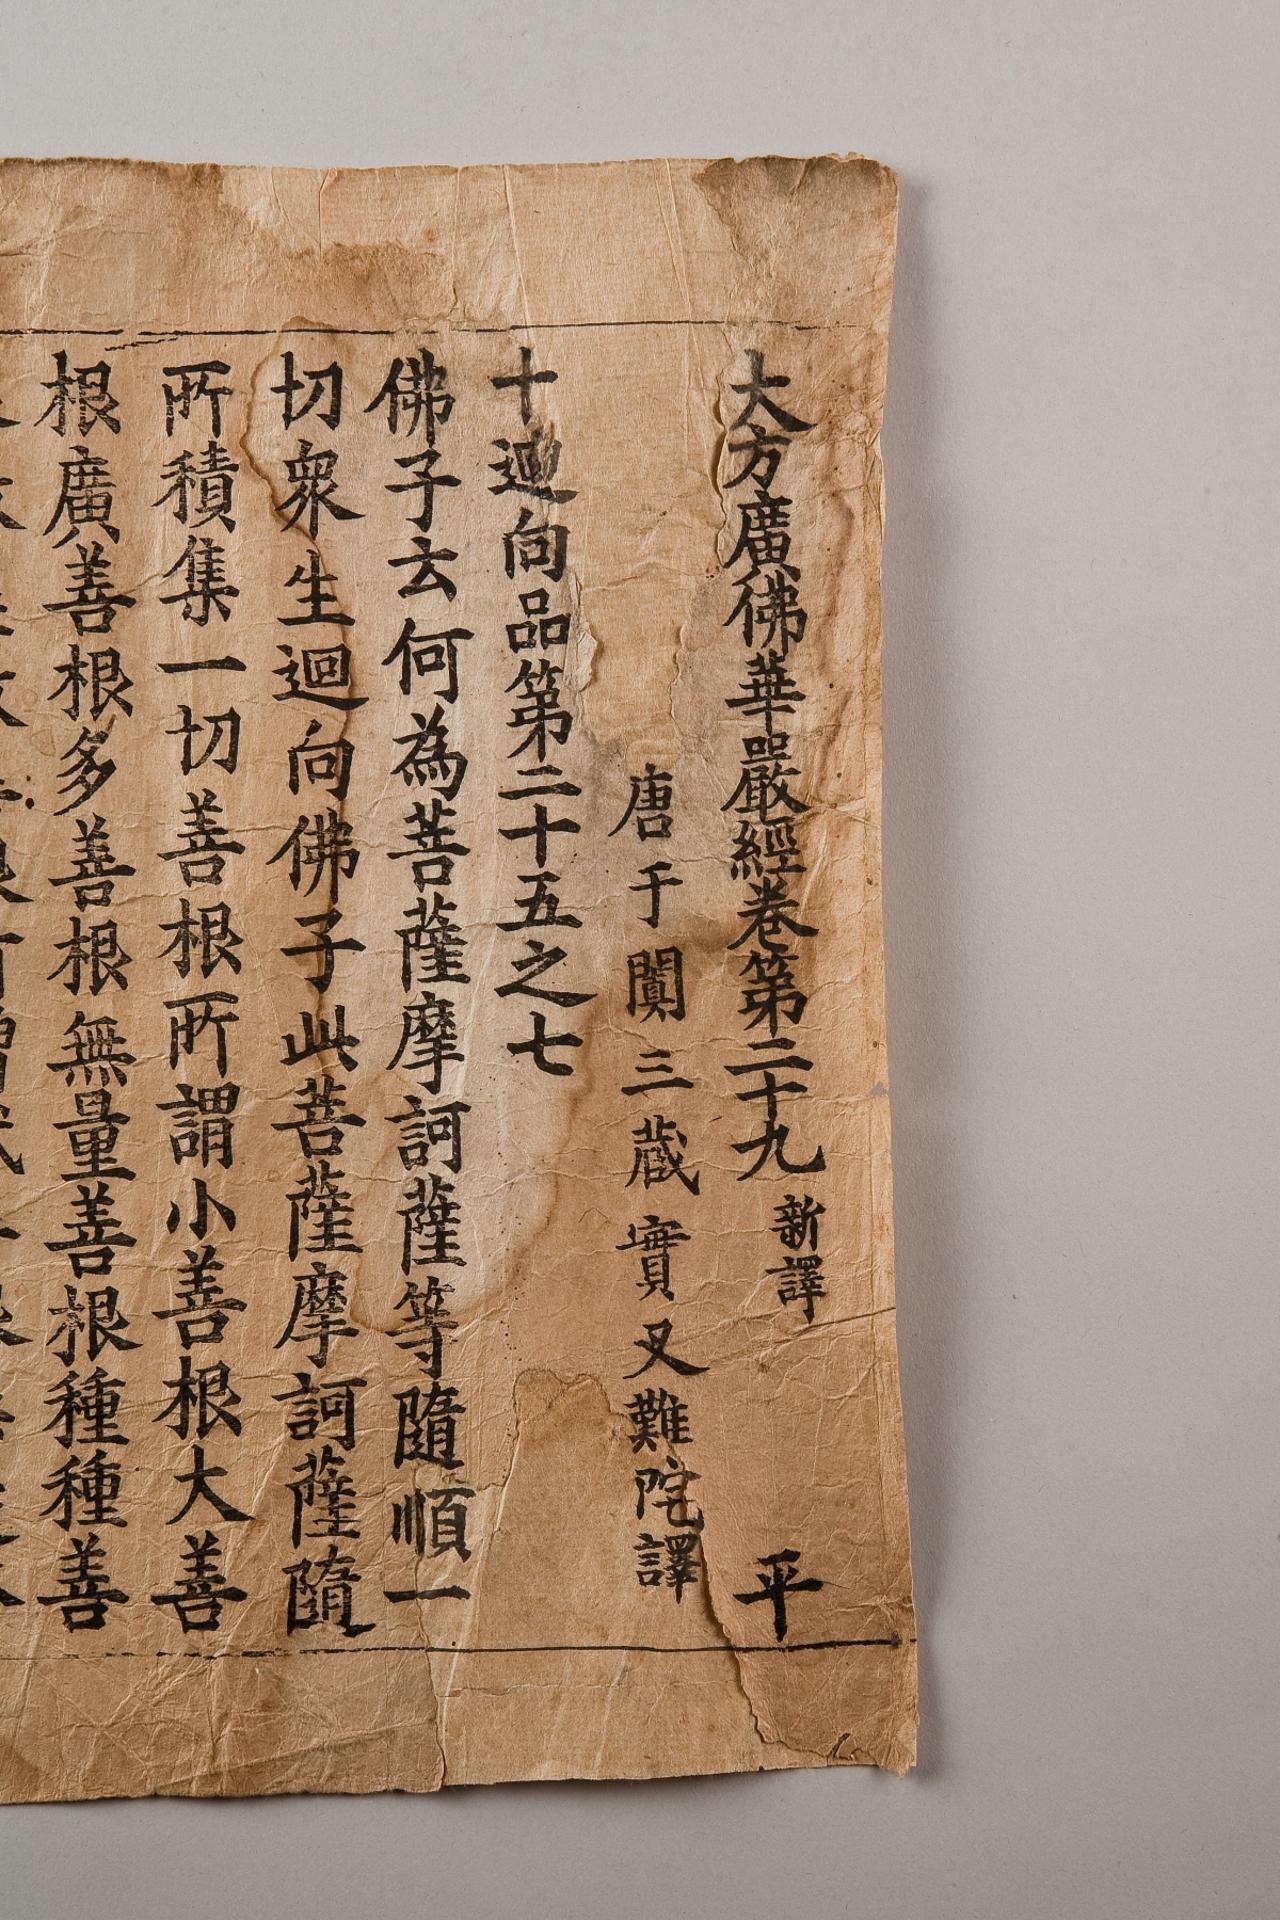 大方廣佛華嚴經卷第二十九 新譯 平
唐于闐三藏實叉難陀譯
十迴向品第二十五之七
佛子云何為菩薩摩訶薩等隨順一
切衆生迴向佛子此菩薩摩訶薩隨
所積集一切善根所謂小善根大善
根廣善根多善根無量善根種種善